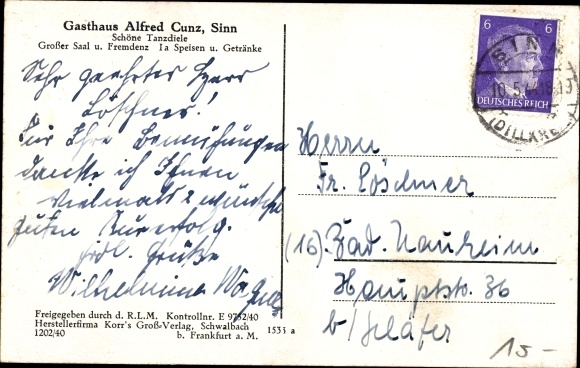 Gasthaus Alfred Cunz, Sinn
Schöne Tanzdiele
Großer Saal u. Fremdenz Ia Speisen u. Getränke
Sehr geehrter Herr
Löschner!
Für Ihre Bemühungen
danke ich Ihnen
vielmals & wünsche
guten Kurerfolg.
frdl. Grüße
Wilhelmine
Freigegeben durch d. R.L.M. Kontrollnr. E 9752/40
Herstellerfirma Korr's Groß-Verlag, Schwalbach
1202/40 b. Frankfurt a. M.
1533 a
6 6
DEUTSCHES REICH
SINN
(DILLKR
Herrn
Fr. Löschner
(16) Bad. Nauheim
Hauptstr. 36
b/ Schäfer
15-